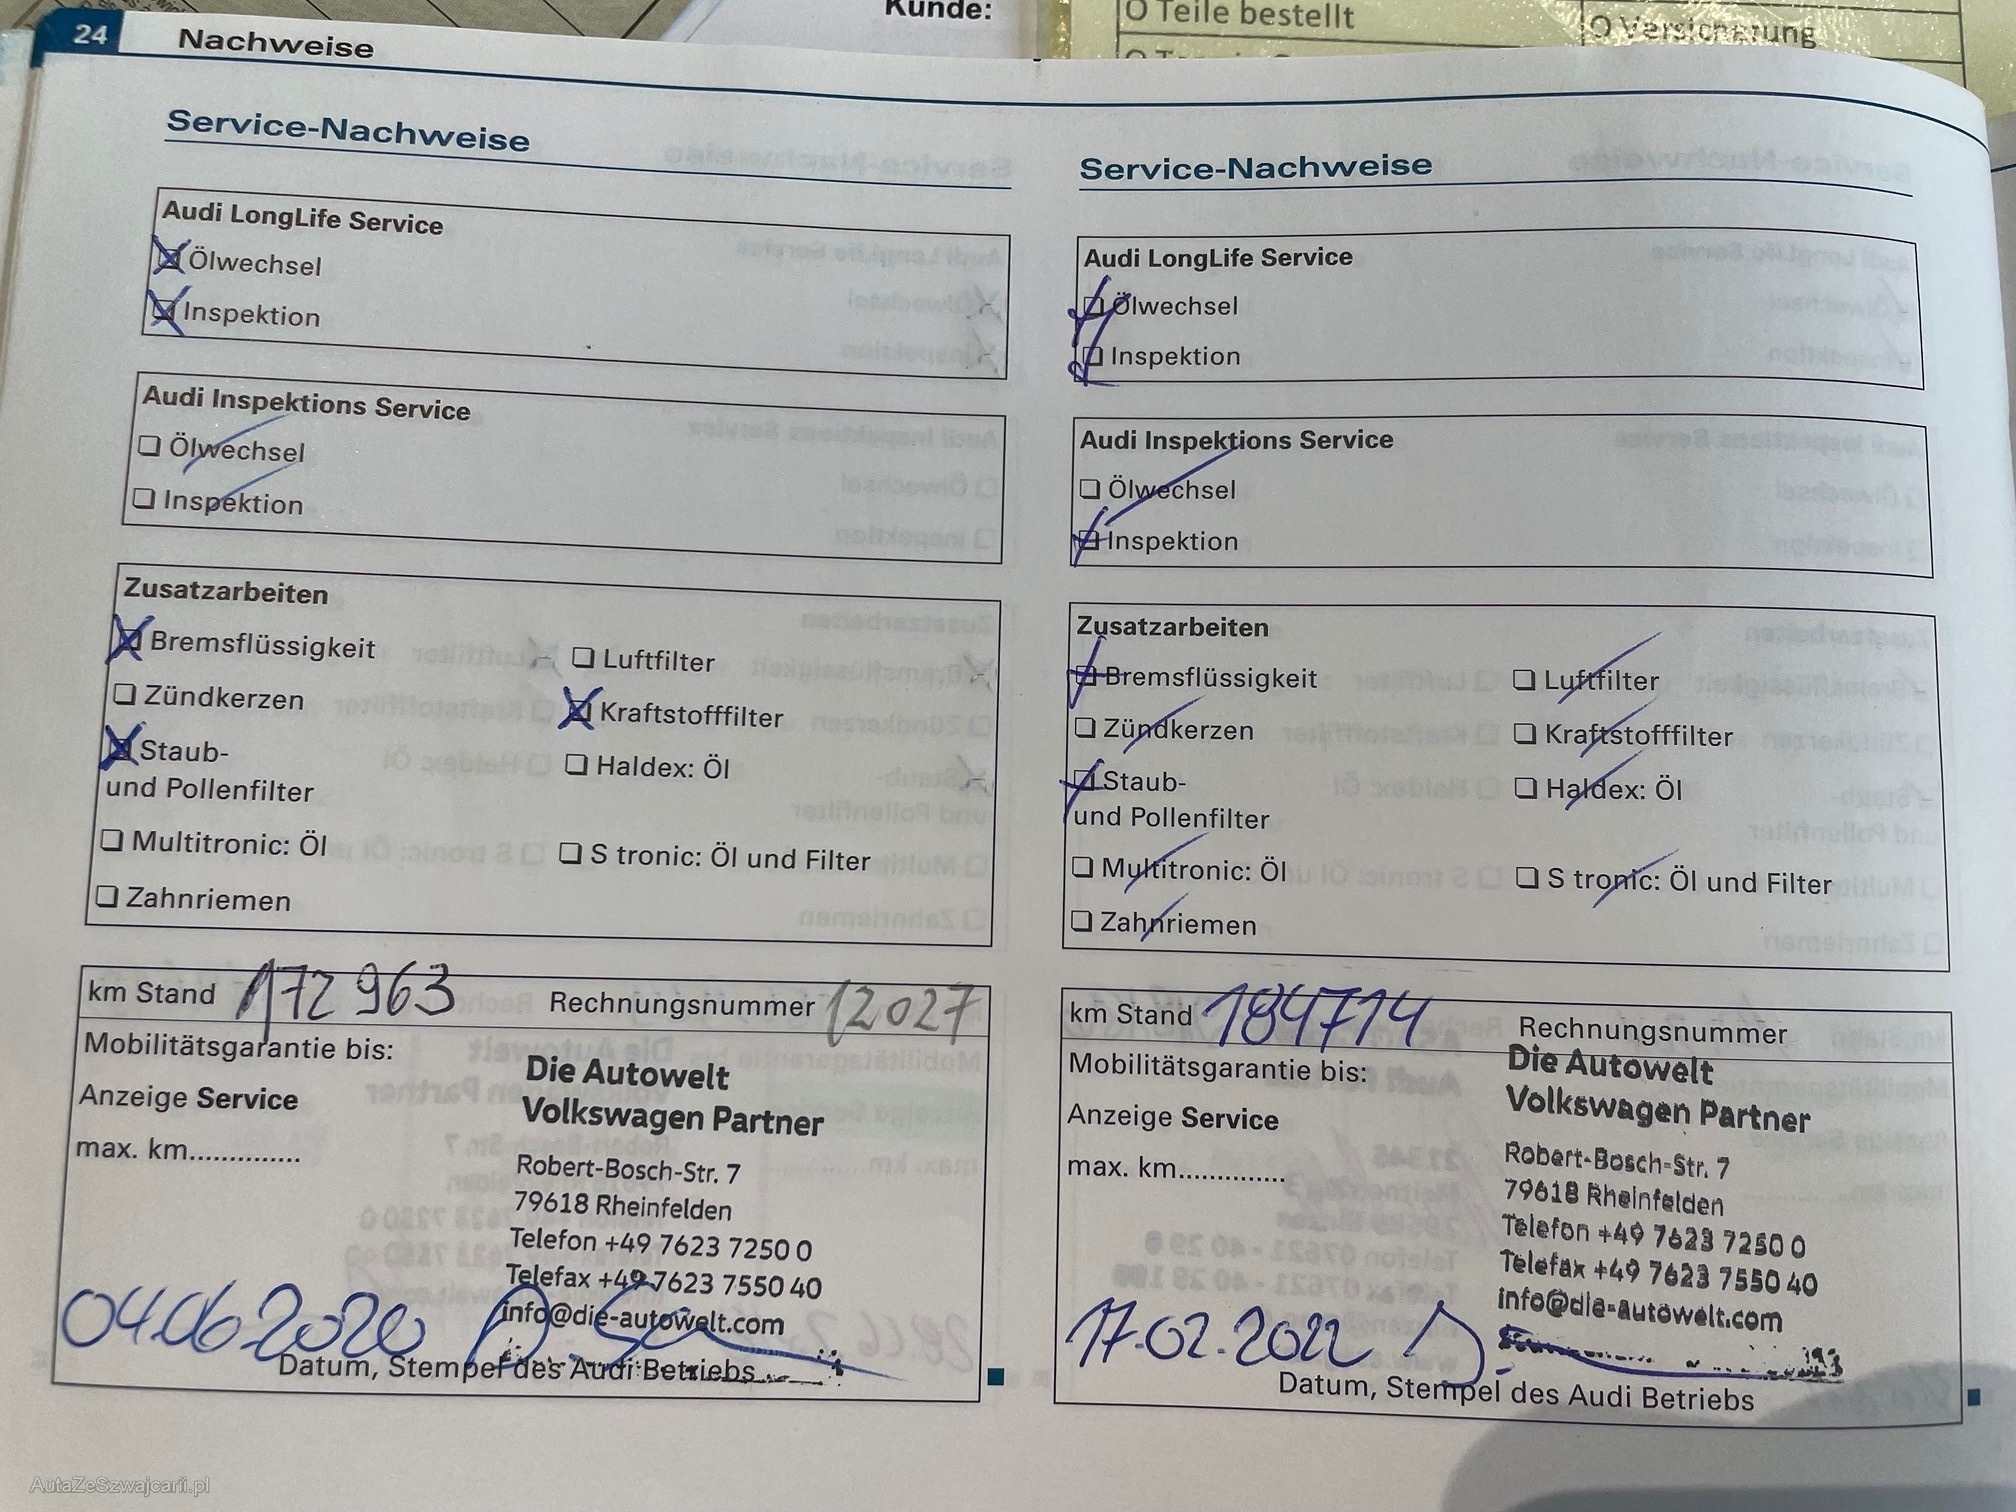 Kunde:
O Teile bestellt
O Versicherung
24 Nachweise
Service-Nachweise
Audi LongLife Service
Ölwechsel
Inspektion
Audi Inspektions Service
Ölwechsel
Inspektion
Zusatzarbeiten
Bremsflüssigkeit
Luftfilter
Zündkerzen
Kraftstofffilter
Staub-
und Pollenfilter
Haldex: Öl
Multitronic: Öl
S tronic: Öl und Filter
Zahnriemen
km Stand 172 963 Rechnungsnummer 12027
Mobilitätsgarantie bis:
Anzeige Service
max. km..............
Die Autowelt
Volkswagen Partner
Robert-Bosch-Str. 7
79618 Rheinfelden
Telefon +49 7623 7250 0
Telefax +49 7623 7550 40
info@die-autowelt.com
04.06.2020
Datum, Stempel des Audi Betriebs
Service-Nachweise
Audi LongLife Service
Ölwechsel
Inspektion
Audi Inspektions Service
Ölwechsel
Inspektion
Zusatzarbeiten
Bremsflüssigkeit
Luftfilter
Zündkerzen
Kraftstofffilter
Staub-
und Pollenfilter
Haldex: Öl
Multitronic: Öl
S tronic: Öl und Filter
Zahnriemen
km Stand 184714 Rechnungsnummer
Mobilitätsgarantie bis:
Anzeige Service
max. km..............
Die Autowelt
Volkswagen Partner
Robert-Bosch-Str. 7
79618 Rheinfelden
Telefon +49 7623 7250 0
Telefax +49 7623 7550 40
info@die-autowelt.com
17.02.2022
Datum, Stempel des Audi Betriebs
AutaZeSzwajcarii.pl